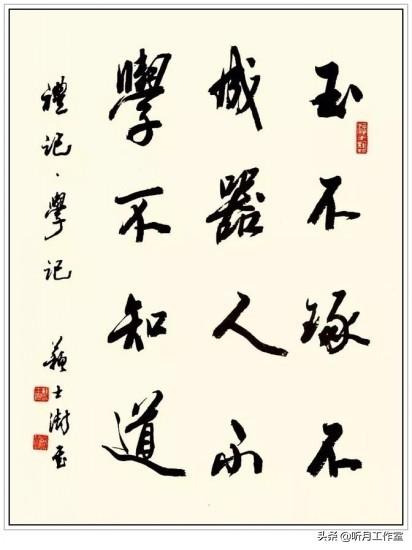 玉不琢不
成器人不
學不知道
禮記·學記
蘇士澍書
头条 @听月工作室